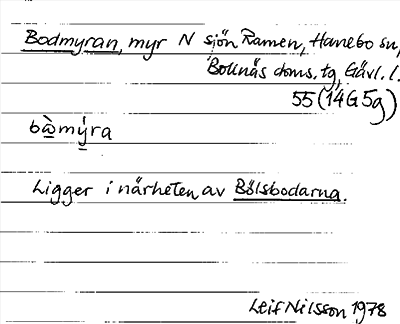 Bodmyran, myr N sjön Ramen, Hanebo sn,
Bollnäs doms. tg, Gävl. l.
55 (14G 5g)
bɷ̀mýra
Ligger i närheten av Bölsbodarna.
Leif Nilsson 1978